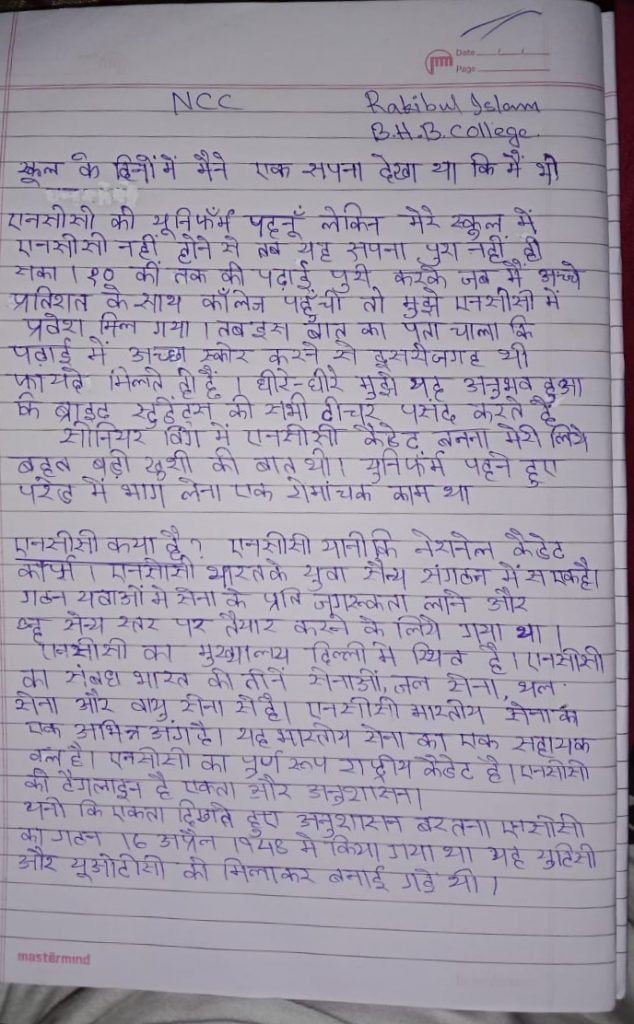 Date
Page
NCC Rakibul Islam
B.H.B. College.
स्कूल के दिनों में मैने एक सपना देखा था कि मैं भी
एनसीसी की यूनिफॉर्म पहनूँ लेकिन मेरे स्कुल में
एनसीसी नहीं होने से तब यह सपना पुरा नहीं हो
सका। १० वीं तक की पढ़ाई पुरी करके जब मैं अच्चे
प्रतिशत के साथ कॉलेज पहुँची तो मुझे एनसीसी में
प्रवेश मिल गया। तब इस बात का पता चाला कि
पढ़ाई में अच्छा स्कोर करने से दुसरी जगह भी
फायदे मिलते ही हैं। धीरे-धीरे मुझे यह अनुभव हुआ
कि ब्राइट स्टुडेंट्स को सभी टीचर पसंद करते है
सीनियर विंग में एनसीसी कैडेट बनना मेरी लिये
बहुत बढ़ी खुशी की बात थी। युनिफॉर्म पहने हुए
परेड में भाग लेना एक रोमांचक काम था
एनसीसी कया है? एनसीसी यानी कि नेशनेल कैडेट
कार्प्स। एनसीसी भारत के युवा सैन्य संगठन में से एक है।
गठन यवाओं मे सेना के प्रति जगरुकता लाने और
सैन्य स्तर पर तैयार करने के लिये गया था।
एनसीसी का मुख्यालय दिल्ली मे स्थित है। एनसीसी
का संबध भारत की तीनें सेनाओं, जल सेना, थल
सेना और वायु सेना से है। एनसीसी भारतीय सेना के
एक अभिन्न अंग है। यह भारतीय सेना का एक सहायक
बल है। एनसीसी का पुर्ण रूप राष्ट्रीय कैडेट है। एनसीसी
की टैगलाइन है एकता और अनुशासन।
यनी कि एकता दिखाते हुए अनुशासन बरतना एनसीसी
का गठन 16 अप्रैल 1948 मे किया गया था यह युटिसी
और यूओटीसी को मिलाकर बनाई गई थी।
mastermind